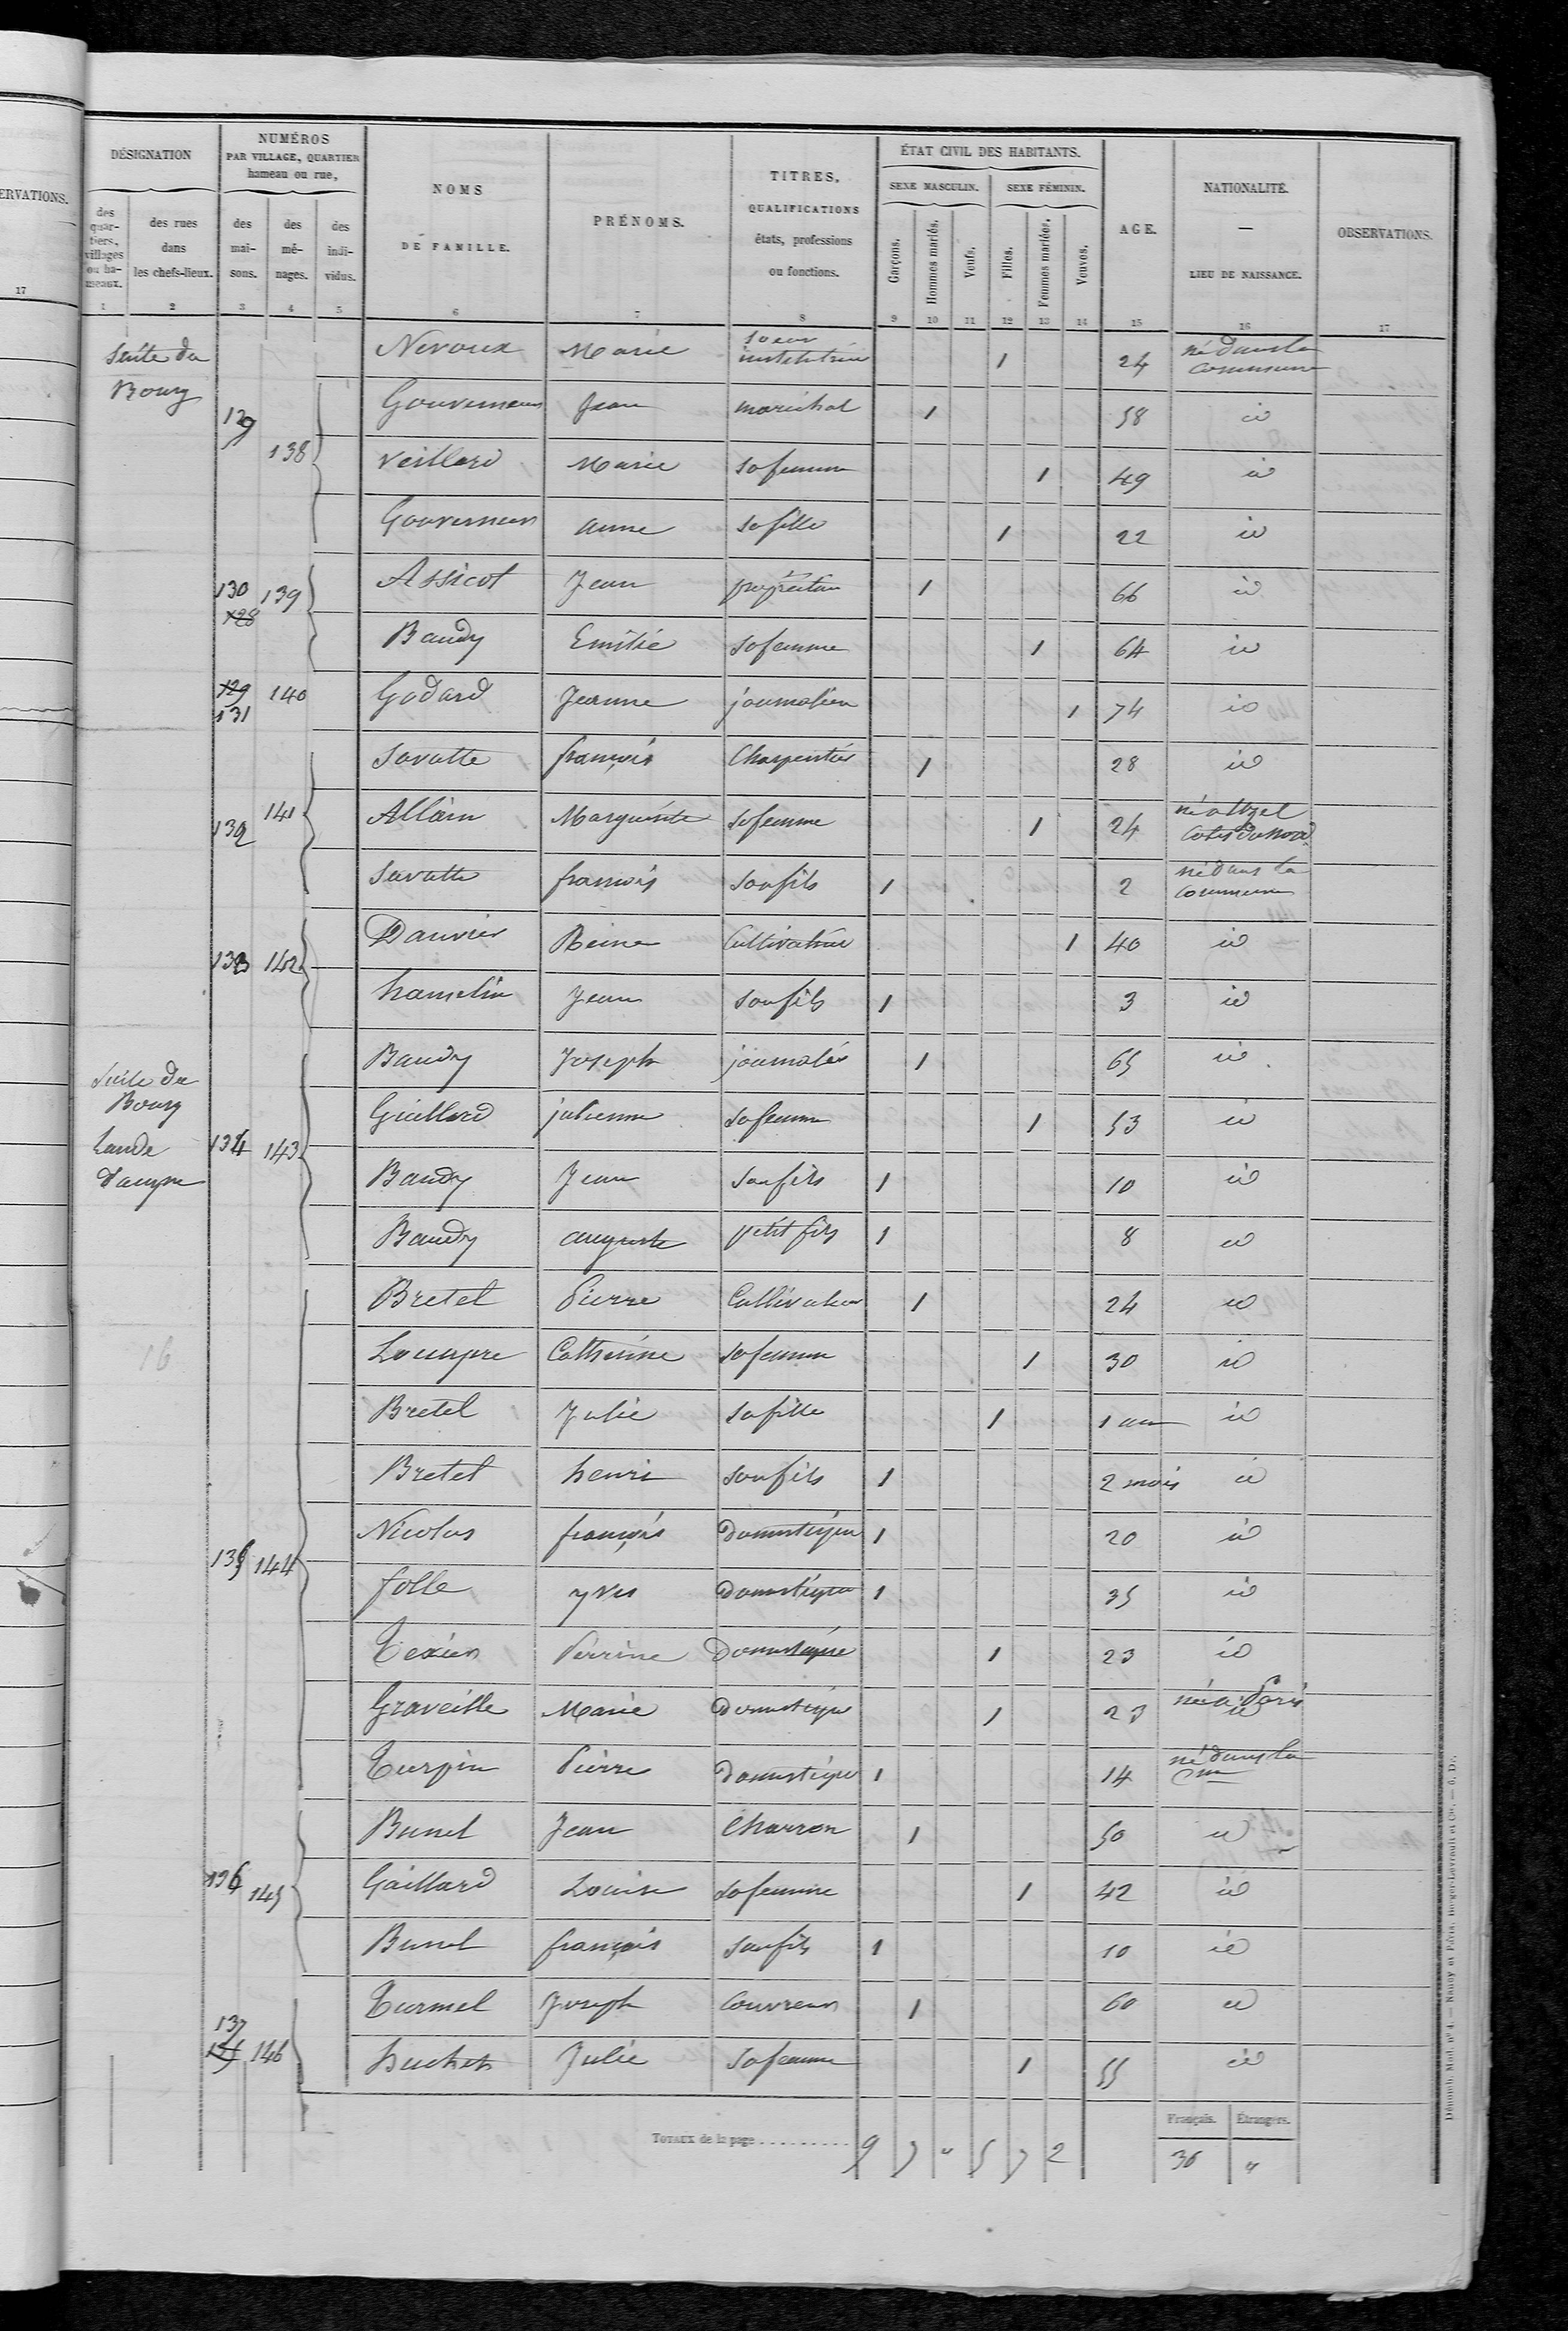 ERVATIONS.
17
DÉSIGNATION
NUMÉROS
PAR VILLAGE, QUARTIER
hameau ou rue,
NOMS
DE FAMILLE.
PRÉNOMS.
TITRES,
QUALIFICATIONS
états, professions
ou fonctions.
ÉTAT CIVIL DES HABITANTS.
SEXE MASCULIN. SEXE FÉMININ.
AGE.
NATIONALITÉ.
—
LIEU DE NAISSANCE.
OBSERVATIONS.
des quar- tiers, villages ou ha- meaux.
des rues dans les chefs-lieux.
des mai- sons.
des mé- nages.
des indi- vidus.
Garçons. Hommes mariés. Veufs. Filles. Femmes mariées. Veuves.
1 2 3 4 5 6 7 8 9 10 11 12 13 14 15 16 17
Suite du Bourg Nevoux Marie soeur institutrice 1 24 né dans la commune
129 138 Gouverneur Jean maréchal 1 58 id
Veillard Marie sa femme 1 49 id
Gouverneur anne sa fille 1 22 id
130 128 139 Assicot Jean propriétaire 1 66 id
Baudy Emilie sa femme 1 64 id
129 131 140 Godard Jeanne journalière 1 74 id
132 141 Savatte françois Charpentier 1 28 id
Allain Marguerite sa femme 1 24 né a Uzel Cotes du Nord
Savatte françois son fils 1 2 né dans la commune
133 142 Danvier Reine Cultivatrice 1 40 id
hamelin Jean son fils 1 3 id
Suite du Bourg
134 143 Baudy Joseph journalier 1 65 id
Lande
Guillard julienne sa femme 1 53 id
Baudy Jean son fils 1 10 id
Baudy auguste petit fils 1 8 id
135 144 Bretel Pierre Cultivateur 1 24 id
16
Louapre Catherine sa femme 1 30 id
Bretel Julie sa fille 1 1 an id
Bretel henri son fils 1 2 mois id
Nicolas françois Domestique 1 20 id
folle yves Domestique 1 35 id
Texier Perrine Domestique 1 23 id
Graveille Marie Domestique 1 23 née a Paris
Turpin Pierre Domestique 1 14 né dans la Cne
136 145 Bunel Jean Charron 1 50 id
Gaillard Louise sa femme 1 42 id
Bunel françois son fils 1 10 id
137 146 Turmel Joseph Couvreur 1 60 id
huchet Julie sa femme 1 55 id
Français. Étrangers.
TOTAUX de la page.......... 9 7 " 5 7 2 30 "
Dénomb. Mod. nº 4. — Nancy et Paris. Berger-Levrault et Cie. — 6. D.